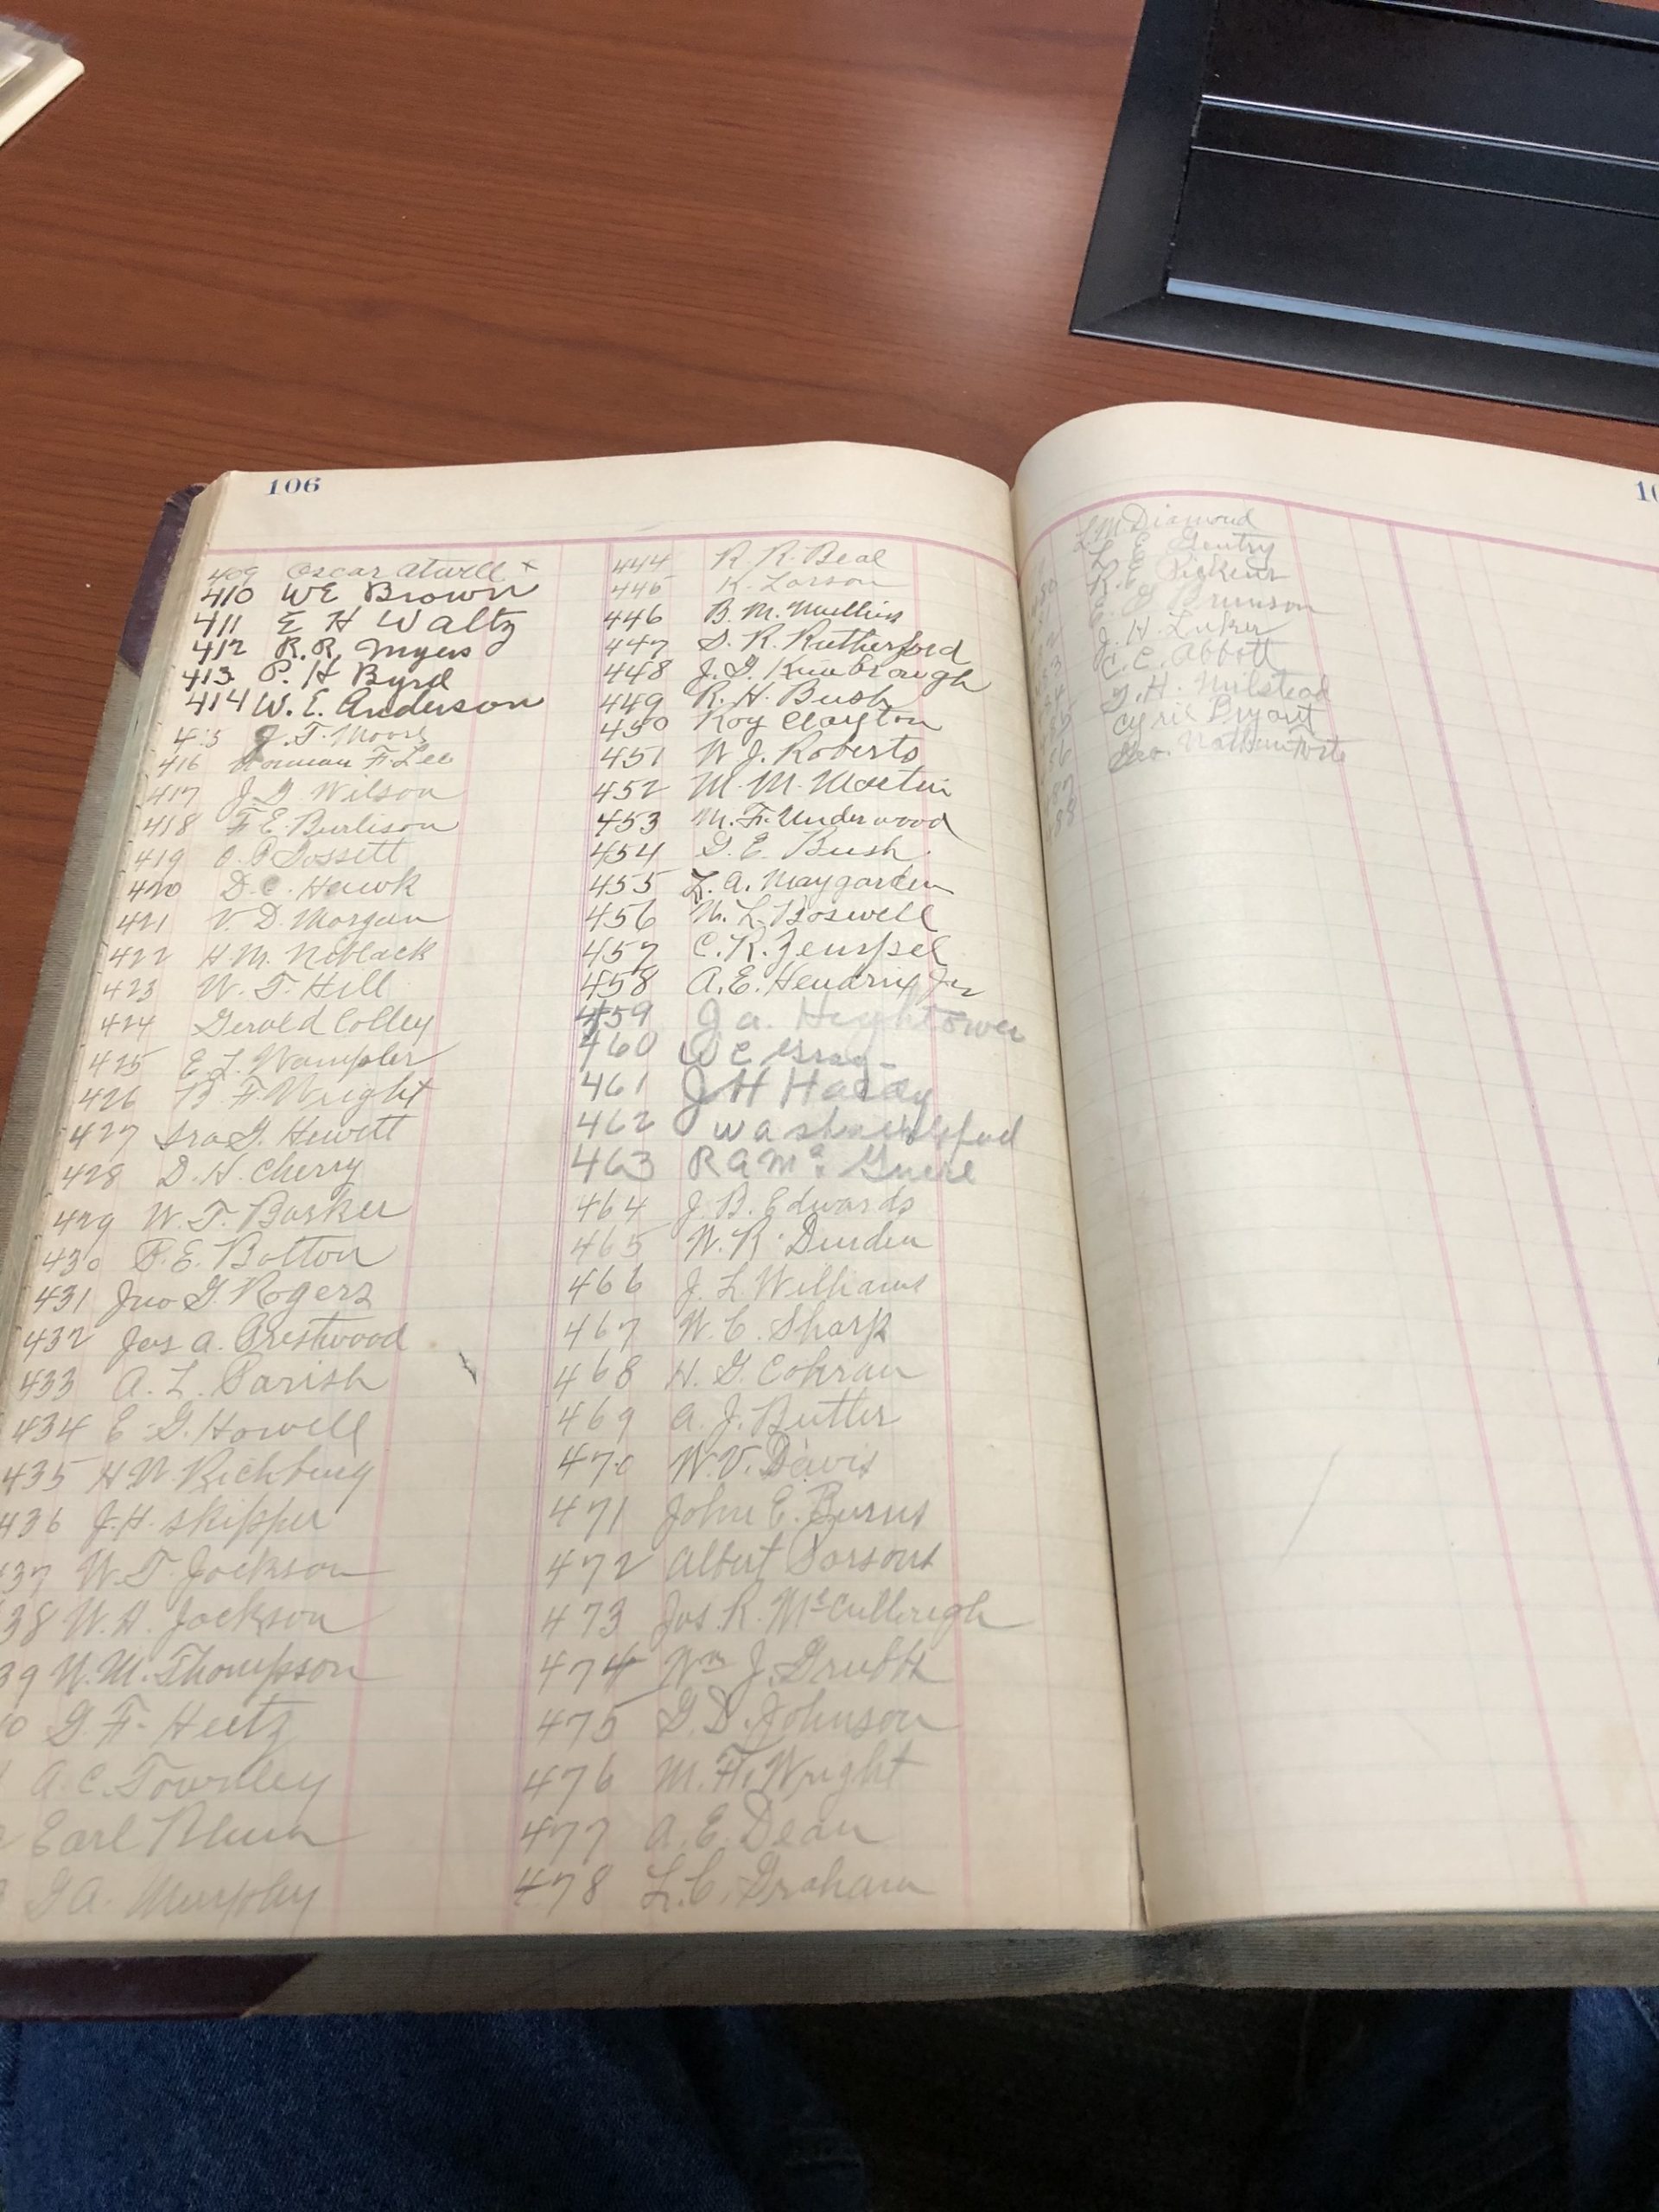 106
409 Oscar Atwell x
410 WE Brown
411 E H Waltz
412 R.R. Myers
413 P. H Byrd
414 W. E. Anderson
415 J. T. Moore
416 Norman F. Lee
417 J. D Wilson
418 F E. Burlison
419 O. P Gossett
420 D. C. Hawk
421 V. D. Morgan
422 H M. Niblack
423 W. T. Hill
424 Gerald Colley
425 E L. Wampler
426 B. F. Wright
427 Ira G. Hewett
428 D. H. Cherry
429 W. T. Barker
430 P. E. Bolton
431 Jno G. Rogers
432 Jas A. Prestwood
433 A. L. Parish
434 E. G. Howell
435 H W. Richburg
436 J. H. Skipper
437 W. T. Jackson
38 W. H. Jackson
39 W. M. Thompson
0 G. F. Heetz
A. C. Townley
Earl Blum
G A. Murphy
444 R. R. Beal
445 K. Larson
446 B. M. Mullins
447 S. R. Rutherford
448 J. G. Kimbrough
449 R. H. Bush
450 Roy Clayton
451 W J. Roberts
452 M. M. Martin
453 M. F. Underwood
454 G. E. Bush
455 L. A. Maygarden
456 M. L. Boswell
457 C. R.
458 A. E. Hendrix Jr
459 J a. Hightower
460 W E
461 J H Hardy
462 W a
463 R a Mc Guire
464 J. B. Edwards
465 W. R. Durden
466 J. L. Williams
467 W. C. Sharp
468 H. G. Cohran
469 A. J. Butler
470 W. V. Davis
471 John E. Burns
472 Albert Parsons
473 Jas. R. McCullough
474 Wm J. Grubb
475 G. D. Johnson
476 M. H. Wright
477 A. E. Dean
478 L. C. Graham
10
L M Diamond
L E Gentry
R. E. Pickens
E. G Brunson
J. H. Luker
C. C. Abbott
G. H. Milstead
Cyril Bryant
Geo.